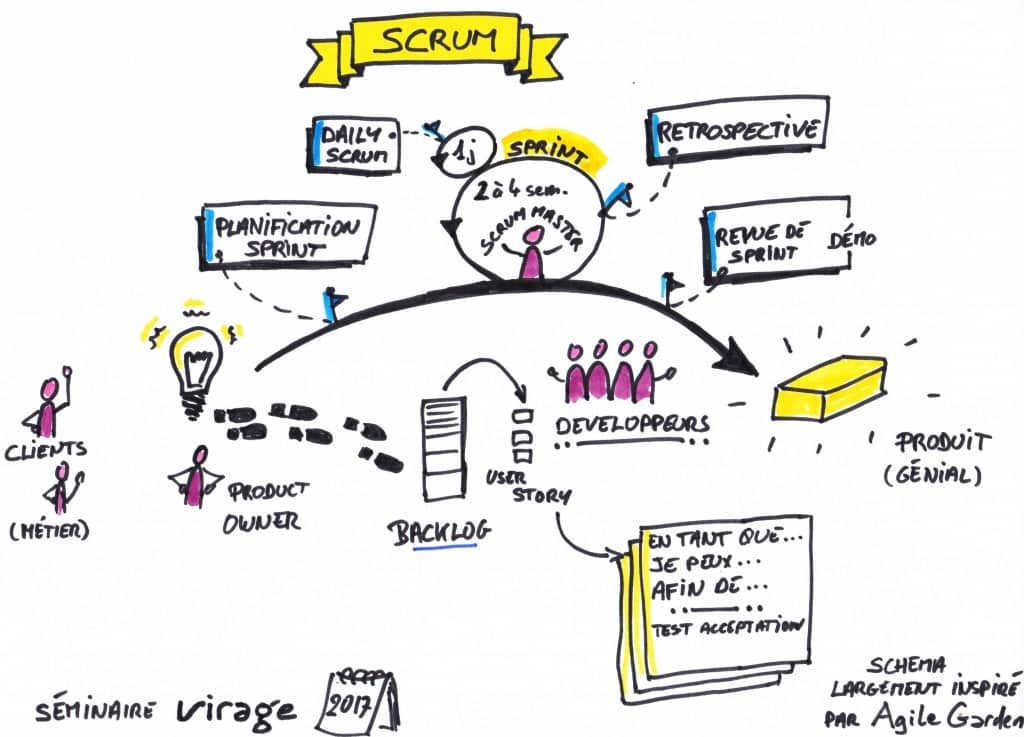 SCRUM
DAILY
SCRUM
1j
SPRINT
2 à 4 sem.
SCRUM MASTER
RETROSPECTIVE
PLANIFICATION
SPRINT
REVUE DE
SPRINT
DÉMO
CLIENTS
(MÉTIER)
PRODUCT
OWNER
BACKLOG
USER
STORY
DEVELOPPEURS
PRODUIT
(GÉNIAL)
EN TANT QUE...
JE PEUX...
AFIN DE...
TEST ACCEPTATION
SÉMINAIRE virage
2017
SCHEMA
LARGEMENT INSPIRÉ
PAR Agile Garden